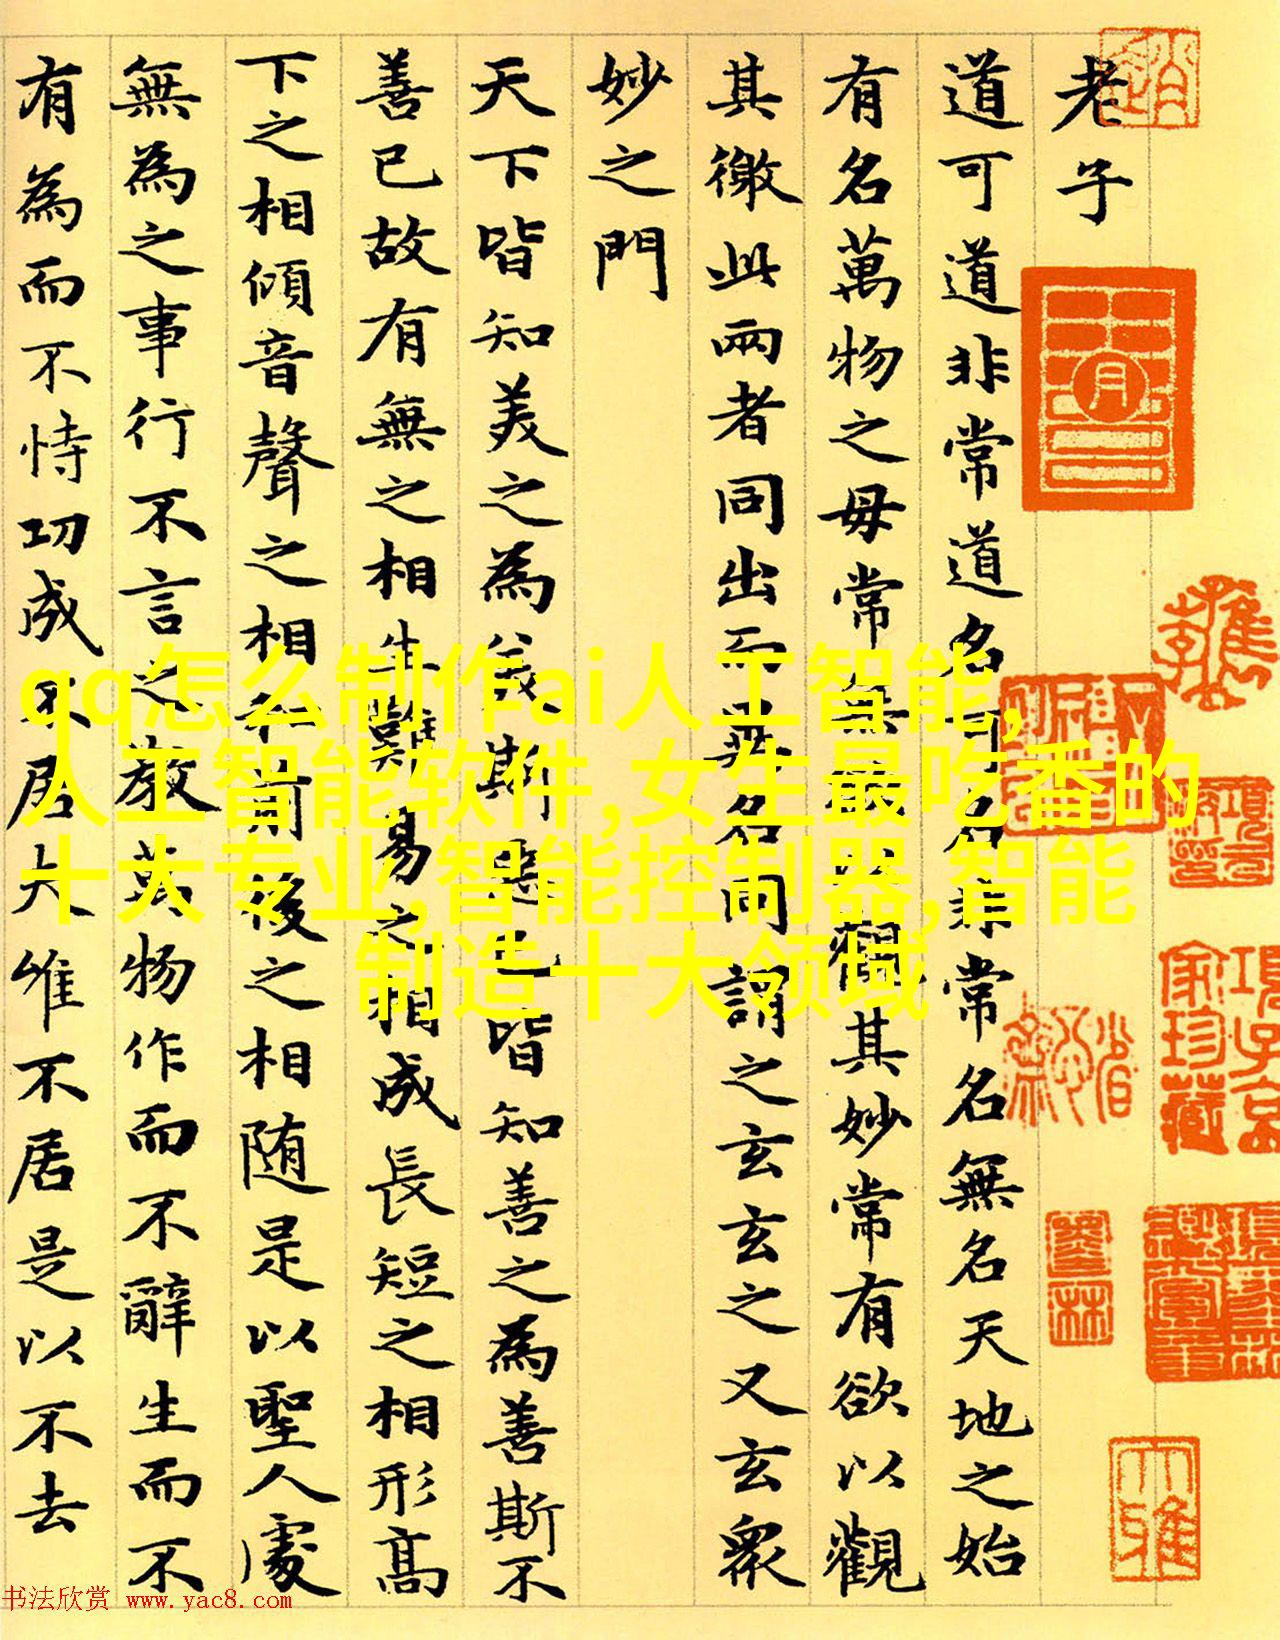 老子
道可道非常道名可名非常名無名天地之始
有名萬物之母常無欲以觀其妙常有欲以觀
其徼此兩者同出而異名同謂之玄玄之又玄眾
妙之門
天下皆知美之為美斯惡已皆知善之為善斯不
善已故有無之相生難易之相成長短之相形髙
下之相傾音聲之相和前後之相随是以聖人處
無為之事行不言之教萬物作而不辭生而不
有為而不恃功成不居夫唯不居是以不去
qq怎么制作ai人工智能,
人工智能软件,女生最吃香的
十大专业,智能控制器,智能
制造十大领域
項子京
家珍藏
大雅
书法欣赏 www.yac8.com